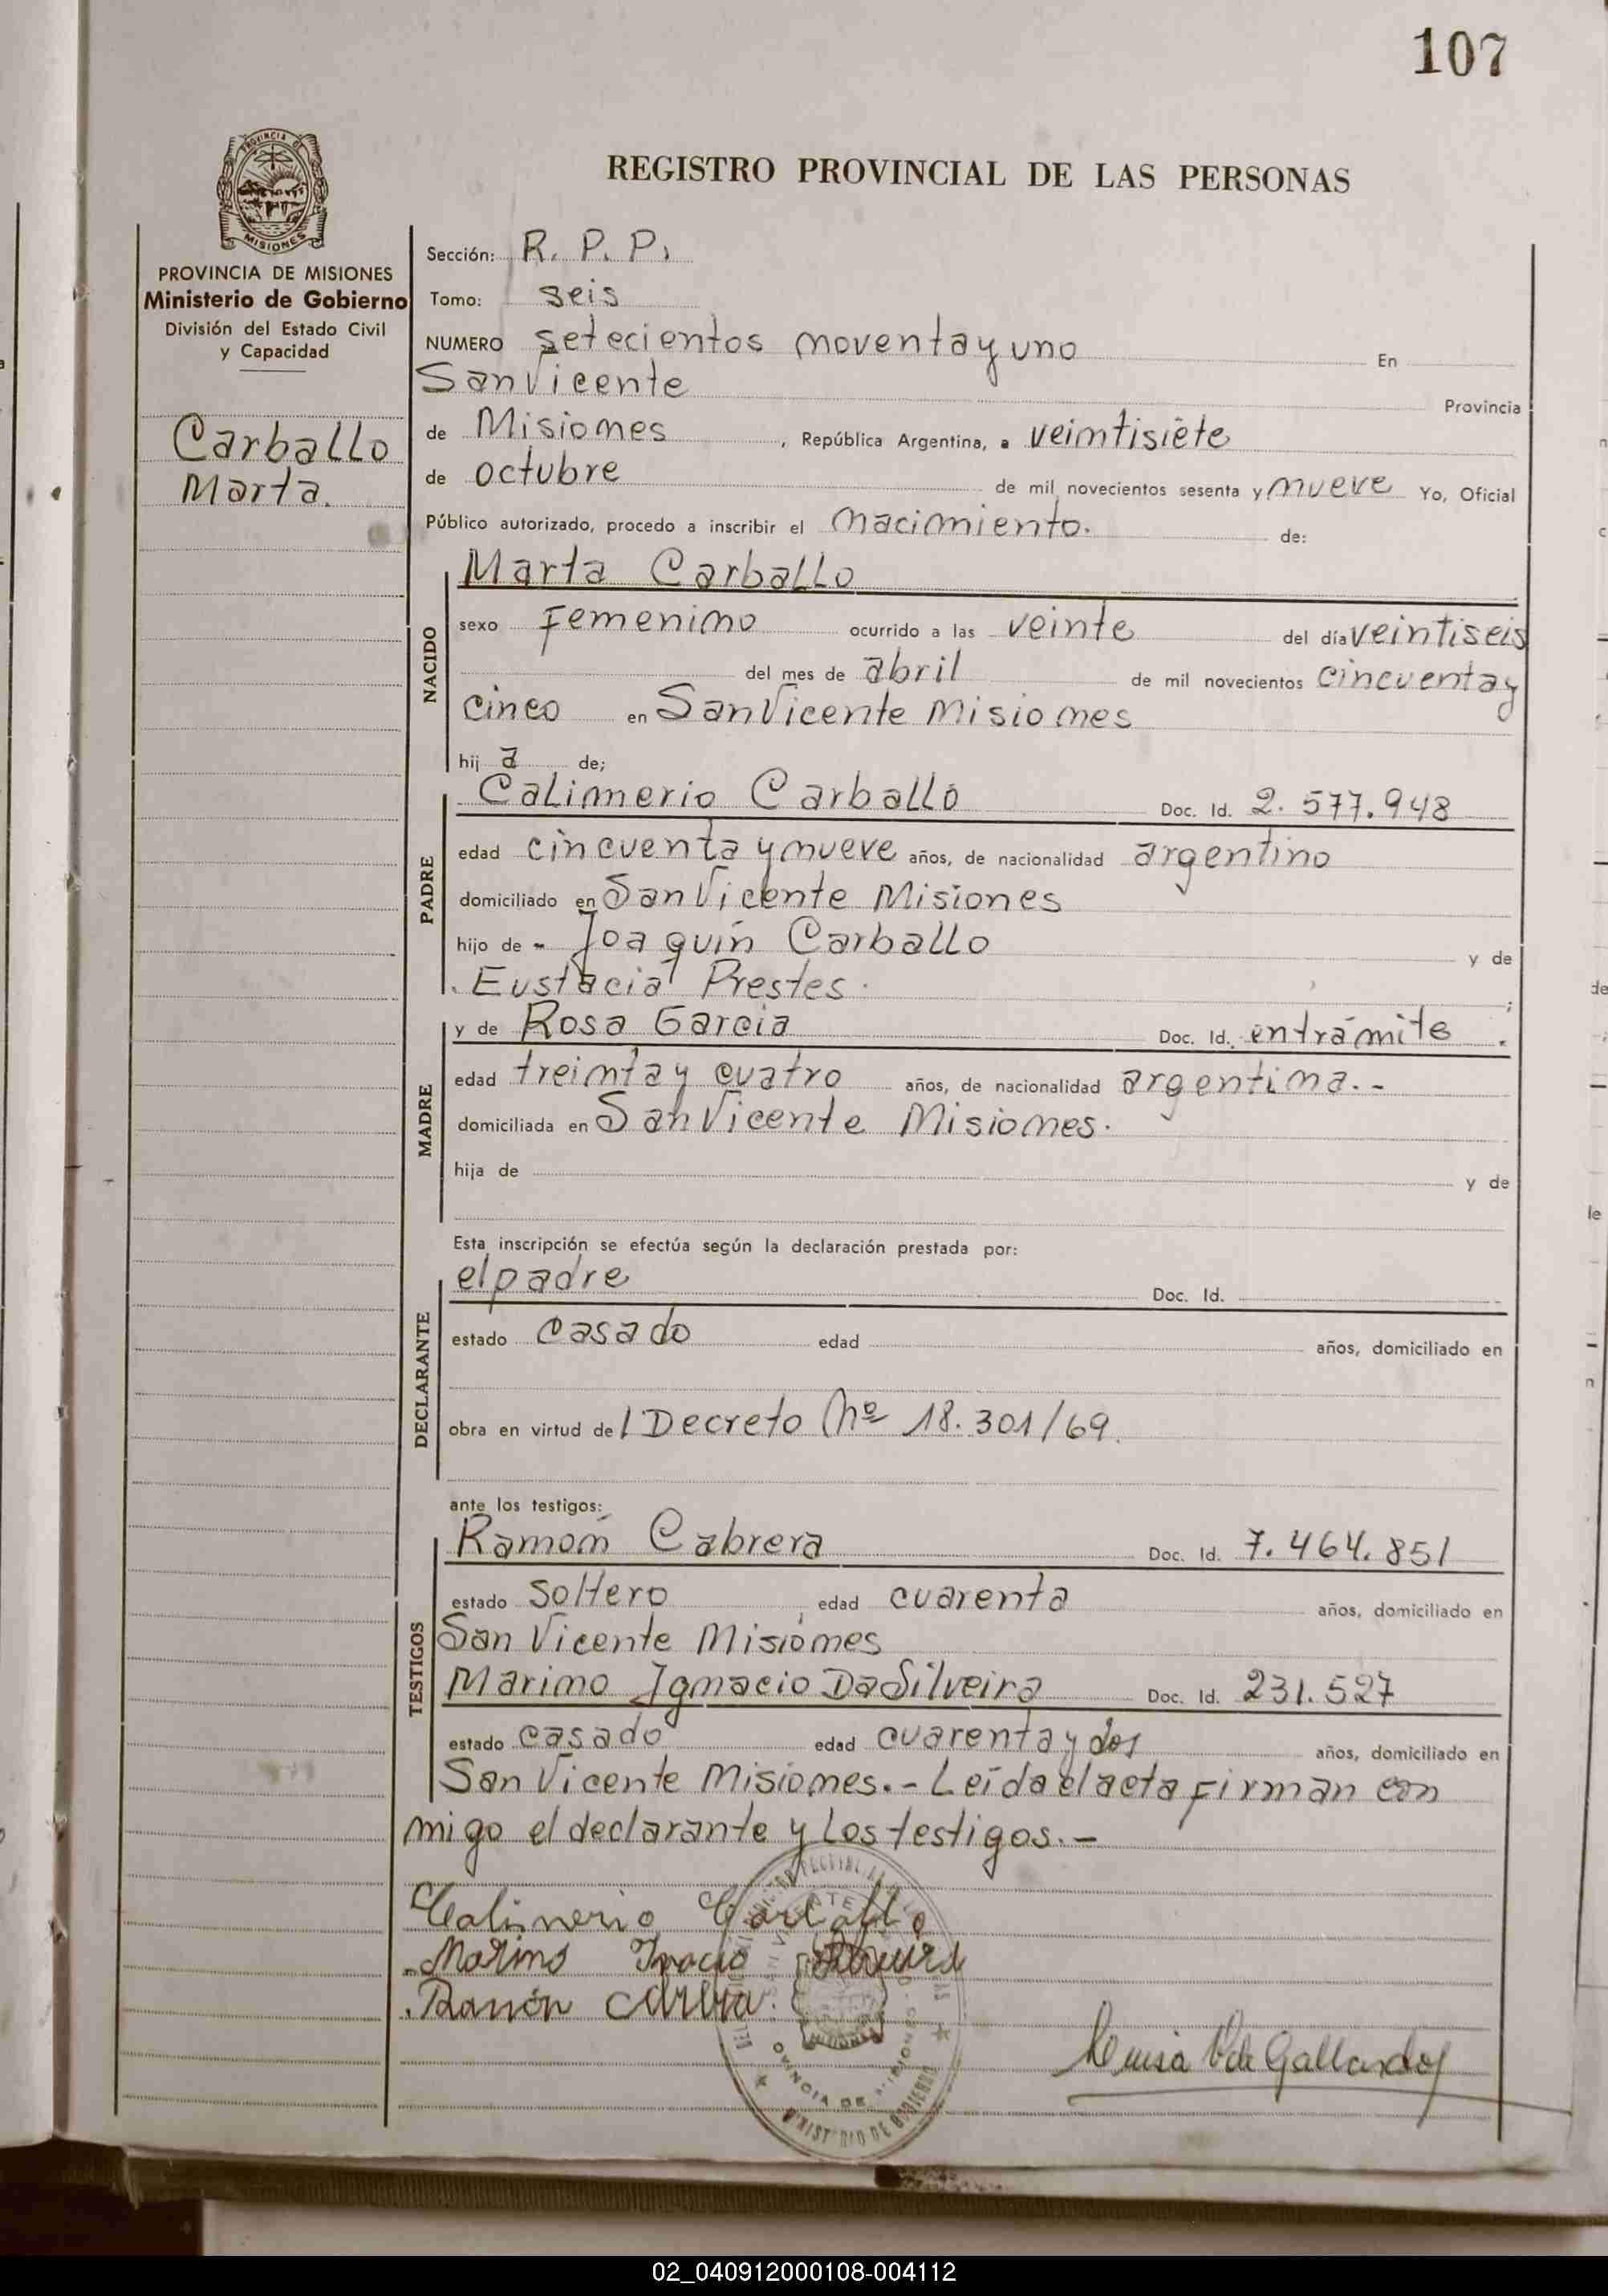 107
REGISTRO PROVINCIAL DE LAS PERSONAS
PROVINCIA DE MISIONES
Ministerio de Gobierno
División del Estado Civil
y Capacidad
Carballo
Marta.
Sección: R. P. P.
Tomo: seis
NUMERO setecientos noventa y uno En
San Vicente Provincia
de Misiones, República Argentina, a veintisiete
de octubre de mil novecientos sesenta y nueve Yo, Oficial
Público autorizado, procedo a inscribir el nacimiento. de:
NACIDO
Marta Carballo
sexo Femenino ocurrido a las veinte del día veintiseis
del mes de abril de mil novecientos cincuenta y
cinco en San Vicente Misiones
hij a de;
PADRE
Calimerio Carballo Doc. Id. 2.577.948
edad cincuenta y nueve años, de nacionalidad argentino
domiciliado en San Vicente Misiones
hijo de - Joaquín Carballo y de
. Eustacia Prestes.
MADRE
y de Rosa Garcia Doc. Id. en trámite.
edad treinta y cuatro años, de nacionalidad argentina.-
domiciliada en San Vicente Misiones.
hija de y de
Esta inscripción se efectúa según la declaración prestada por:
DECLARANTE
el padre Doc. Id.
estado casado edad años, domiciliado en
obra en virtud de l Decreto Nº 18.301/69.
ante los testigos:
TESTIGOS
Ramón Cabrera Doc. Id. 7.464.851
estado soltero, edad cuarenta años, domiciliado en
San Vicente Misiones
Marino Ignacio DaSilveira Doc. Id. 231.527
estado casado edad cuarenta y dos años, domiciliado en
San Vicente Misiones.- Leída el acta firman con
migo el declarante y los testigos.-
Calimerio Carballo
Marino Inacio
Ramón Cabrera.
Luisa V de Gallardo
MINISTERIO DE GOBIERNO
02_040912000108-004112